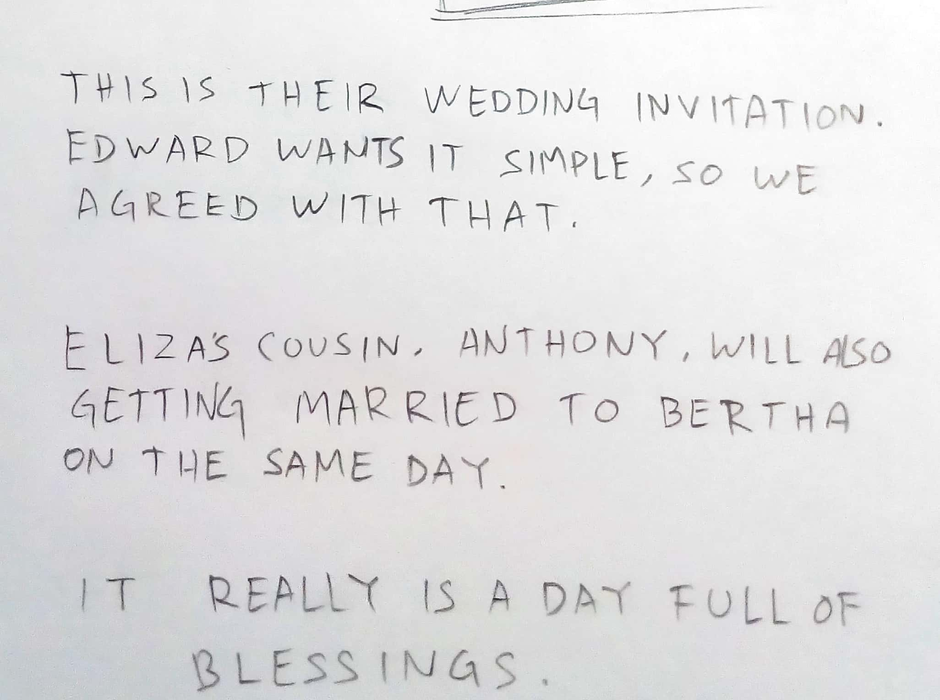 THIS IS THEIR WEDDING INVITATION.
EDWARD WANTS IT SIMPLE, SO WE
AGREED WITH THAT.
ELIZA'S COUSIN, ANTHONY, WILL ALSO
GETTING MARRIED TO BERTHA
ON THE SAME DAY.
IT REALLY IS A DAY FULL OF
BLESSINGS.